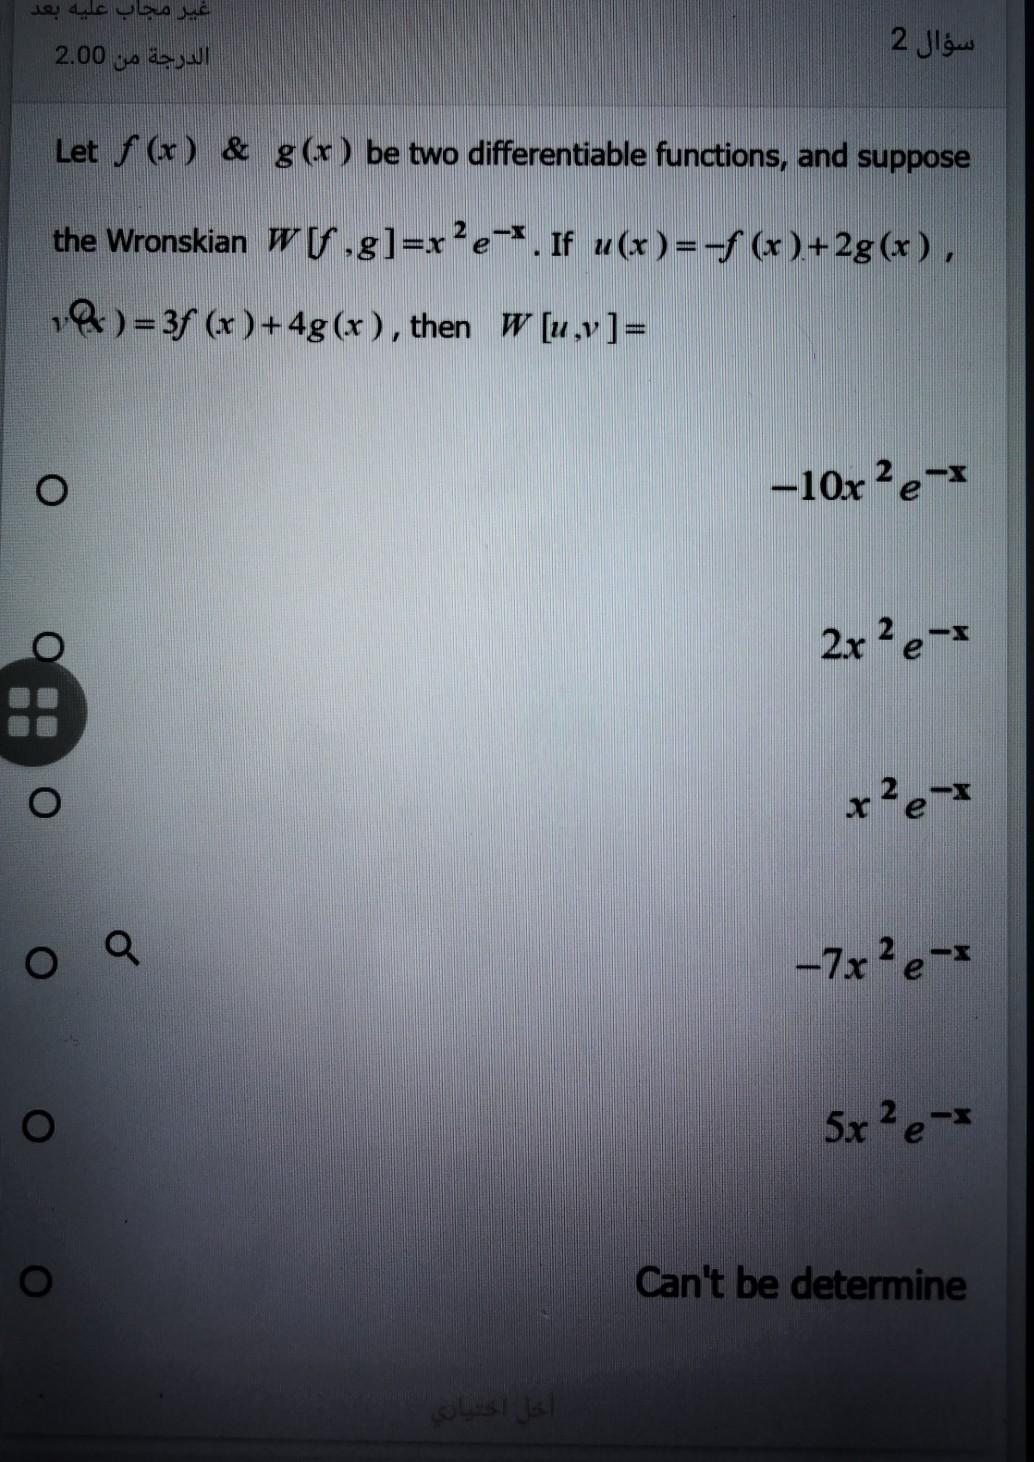 غير مجاب عليه بعد
سؤال 2
الدرجة من 2.00
Let f (x) & g(x) be two differentiable functions, and suppose
the Wronskian W [f ,g]=x²e⁻ˣ. If u(x)=-f (x)+2g(x),
v(x)=3f (x)+4g(x), then W [u,v]=
-10x²e⁻ˣ
2x²e⁻ˣ
x²e⁻ˣ
-7x²e⁻ˣ
5x²e⁻ˣ
Can't be determine
أخل اختياري